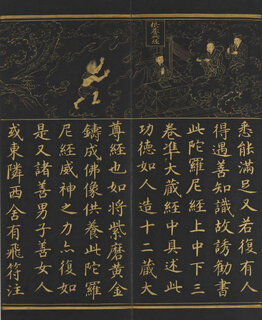 悉能滿足又若復有人
得遇善知識故誘勸書
此陀羅尼經上中下三
卷準大藏經中具述此
功德如人造十二藏大
尊經也如將紫磨黃金
鑄成佛像供養此陀羅
尼經威神之力亦復如
是又諸善男子善女人
或東隣西舍有飛符注